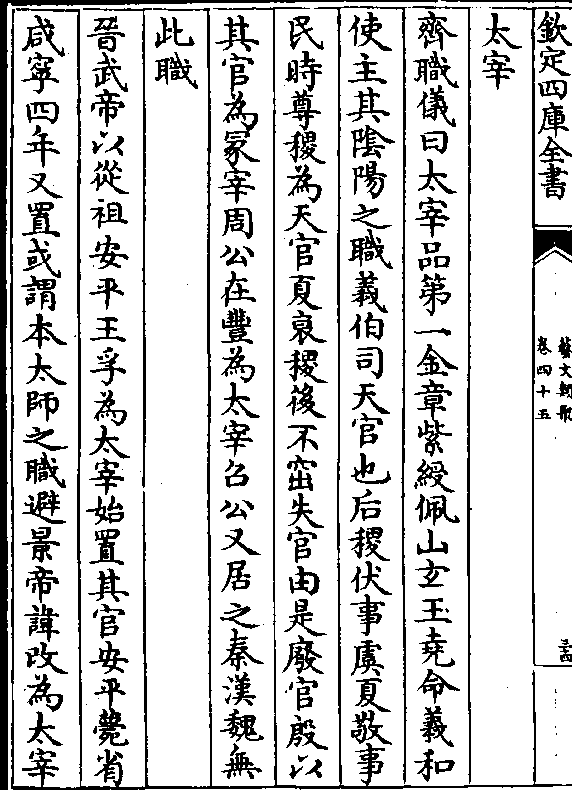 欽定四庫全書
藝文類聚
卷四十五
太宰
齊職儀曰太宰品第一金章紫綬佩山玄玉堯命義和
使主其陰陽之職義伯司天官也后稷伏事虞夏敬事
民時尊稷為天官夏衰稷後不窋失官由是廢官殷以
其官為冢宰周公在豐為太宰召公又居之秦漢魏無
此職
晉武帝以從祖安平王孚為太宰始置其官安平薨省
咸寧四年又置或謂本太師之職避景帝諱改為太宰